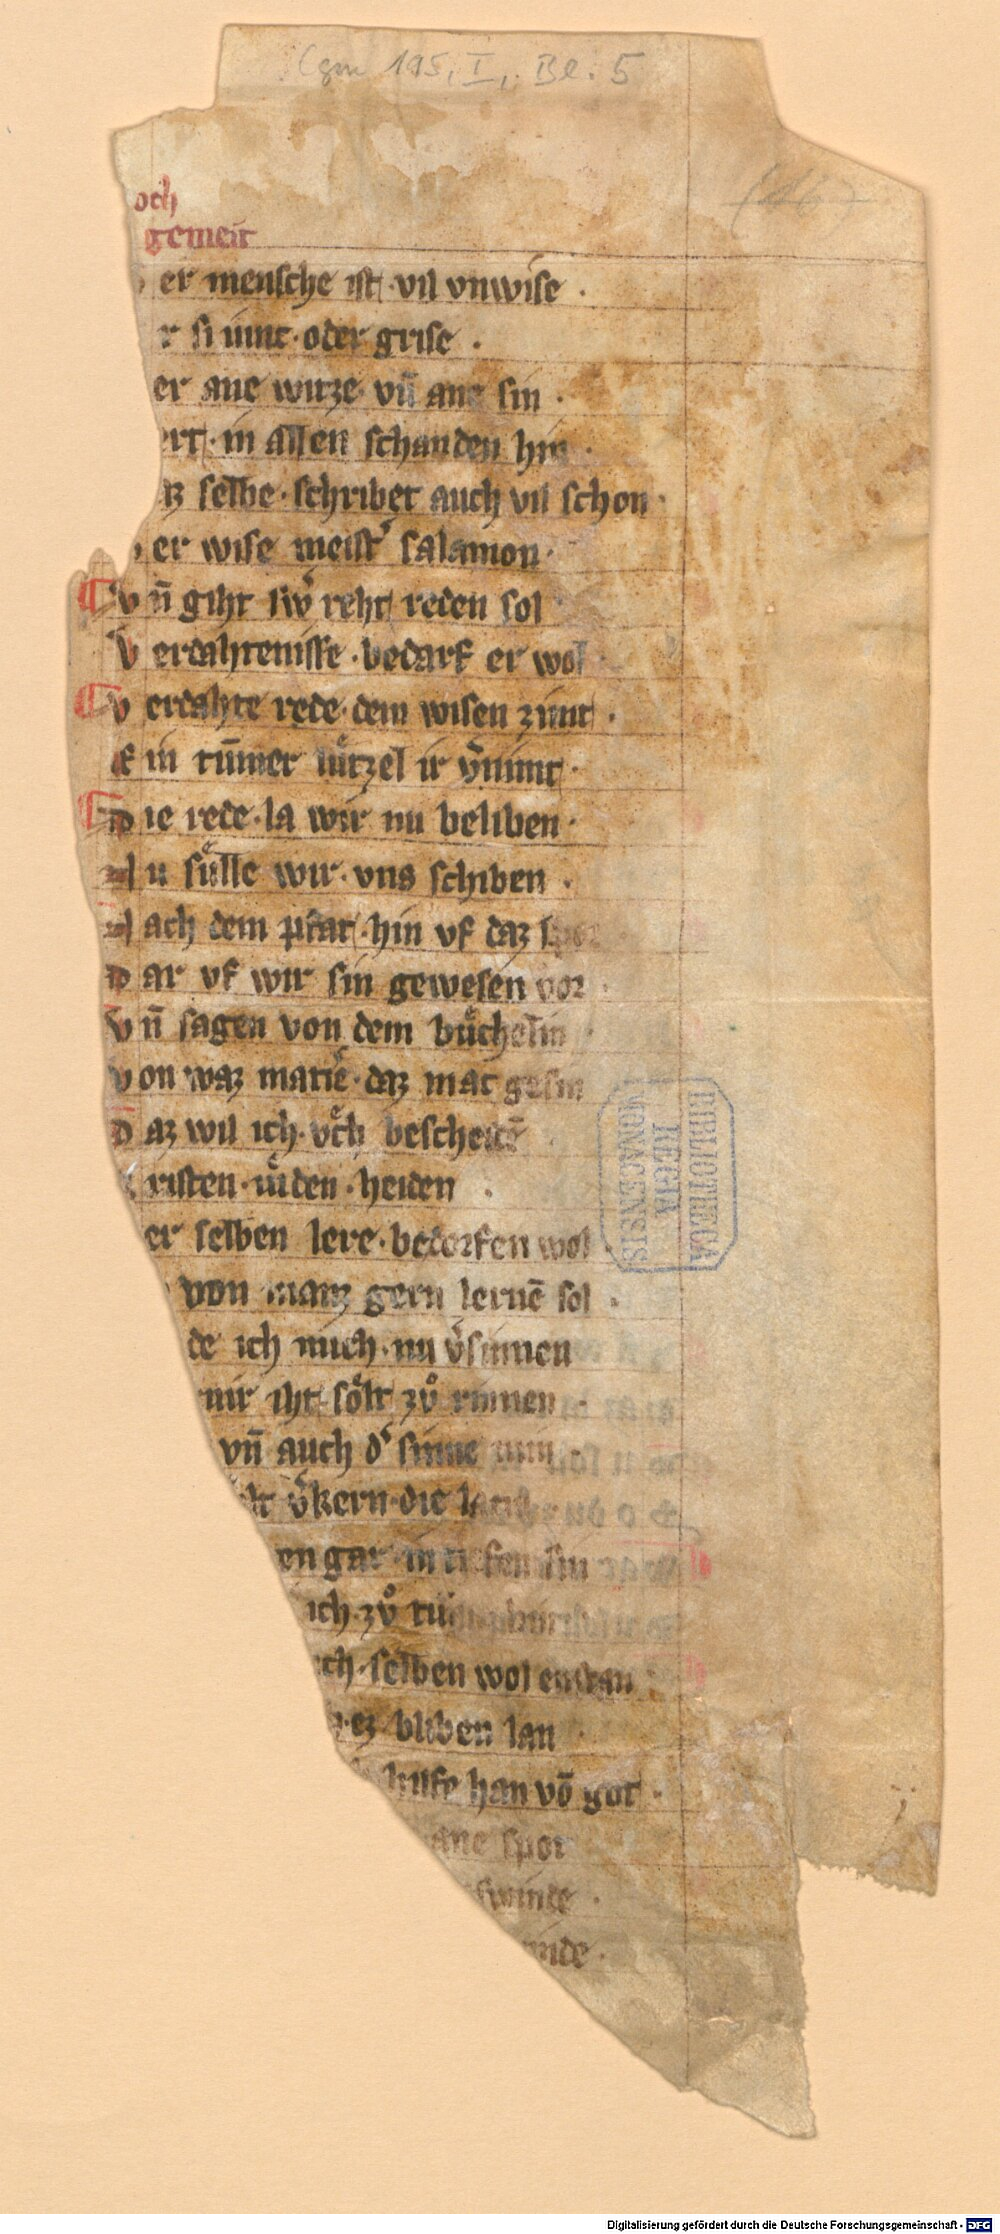 Cgm 195, I, Bl. 5
(16)
och
gemeit
er mensche ist · vil vnwise ·
r si iunc · oder grise ·
er ane witze · vn̄ ane sin ·
ert · in allen schanden hin ·
az selbe · schribet auch vil schon ·
er wise meist͛ salamon ·
v n̄ giht sw͛ reht reden sol
V erdahtenisse · bedarf er wol
v erdahte rede · dem wisen zimt ·
in tūmer lützel ir v͛nimt ·
D ie rede · la wir nu beliben ·
N u sülle wir · vns schiben ·
N ach dem pfat · hin vf daz spor
D ar vf wir sin gewesen vor ·
V n̄ sagen von dem bůchelin ·
V on waz matie͛ · daz mac gesin
D az wil ich · vͤch bescheidē
risten · iüden · heiden ·
er selben lere · bedorfen wol ·
von manz gern lernē sol ·
de ich mich · nu v͛sinnen
mir iht sölt zů rinnen ·
vn̄ auch d͛ sinne min ·
lt v͛kern · die
en gar · in tiefen sin
ich · zů
ch · selben wol enstan
ez · bliben lan ·
hilfe han vō got ·
ane spot
swinde ·
inde ·
BIBLIOTHECA
REGIA
MONACENSIS
Digitalisierung gefördert durch die Deutsche Forschungsgemeinschaft - DFG